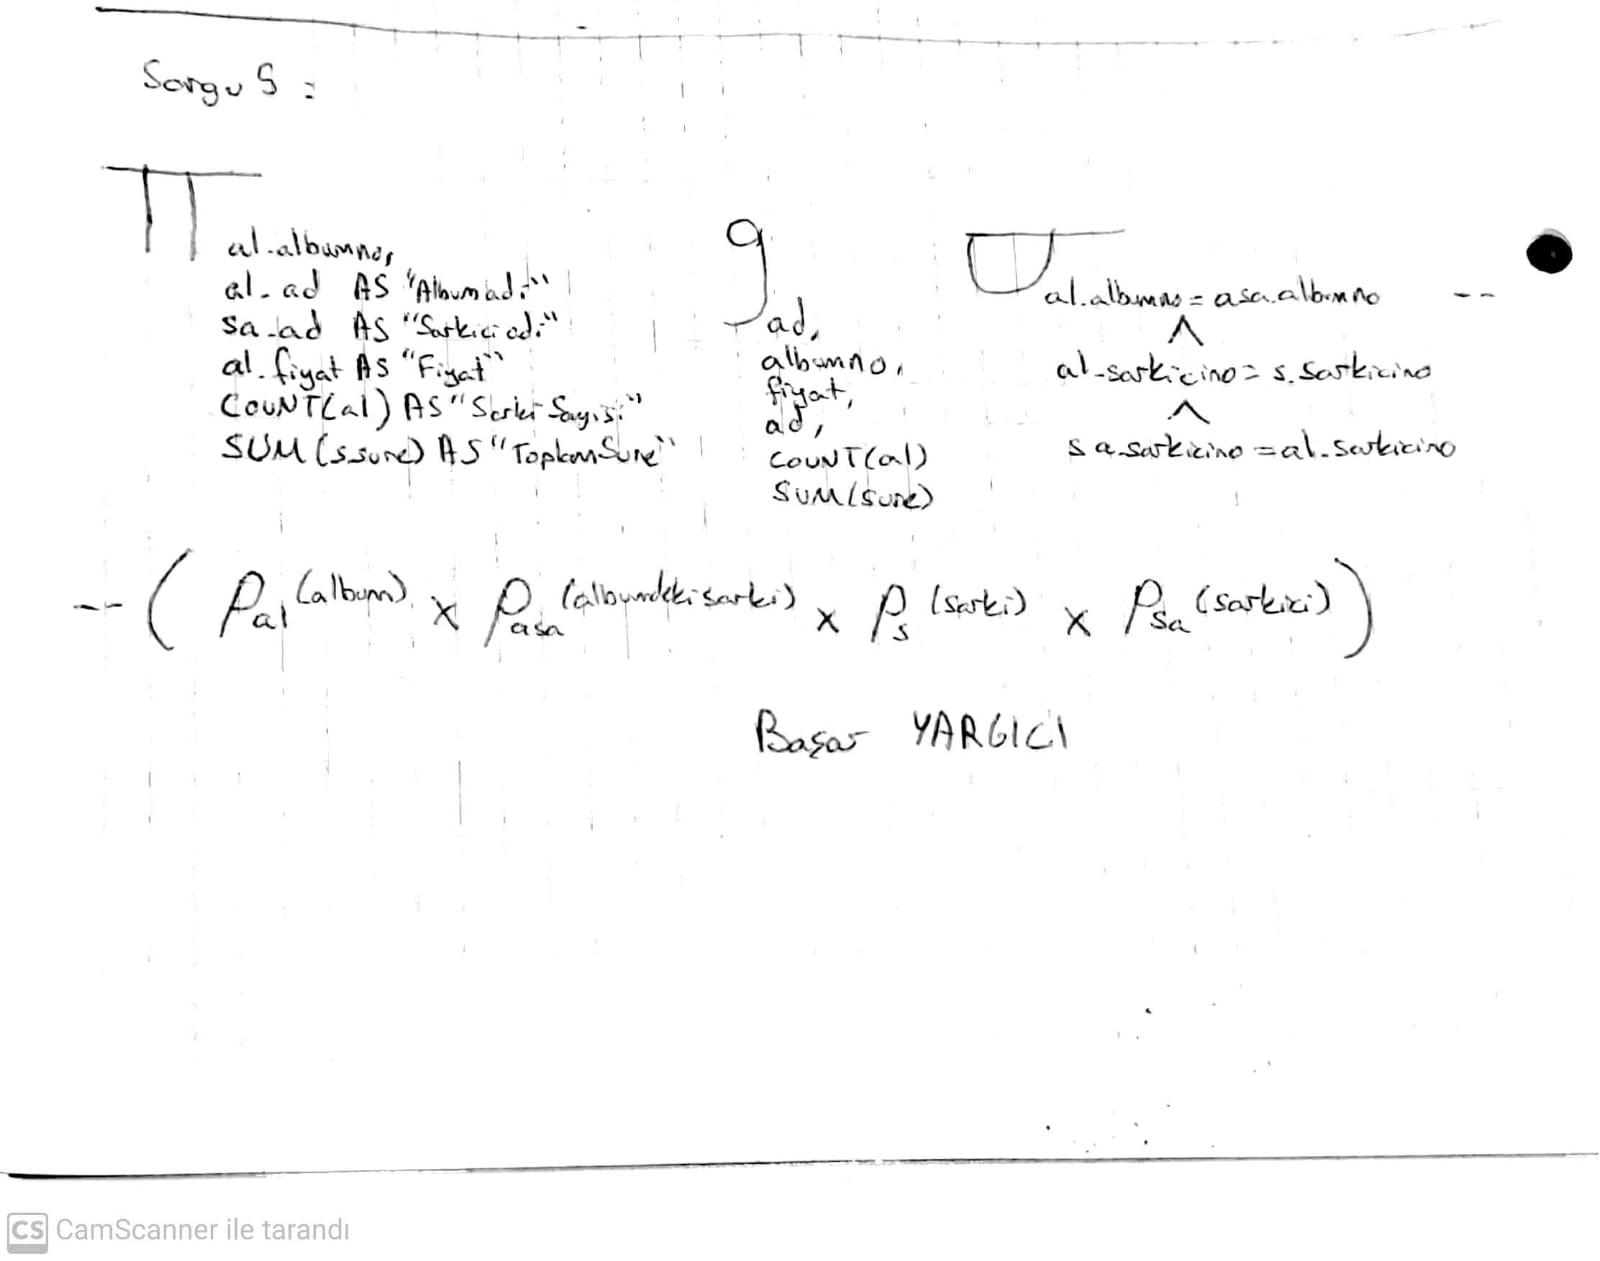 Sorgu 5 :
π al.albumno,
al.ad AS "Albumadı"
sa.ad AS "Sarkiciadı"
al.fiyat AS "Fiyat"
COUNT(al) AS "Sarki Sayısı"
SUM(s.sure) AS "ToplamSure"
g ad,
albumno,
fiyat,
ad,
COUNT(al)
SUM(sure)
σ al.albumno = asa.albumno --
∧
al.sarkicino = s.sarkicino
∧
sa.sarkicino = al.sarkicino
-- ( ρal (album) x ρasa (albumdekisarki) x ρs (sarki) x ρsa (sarkici) )
Başar YARGICI
CS CamScanner ile tarandı